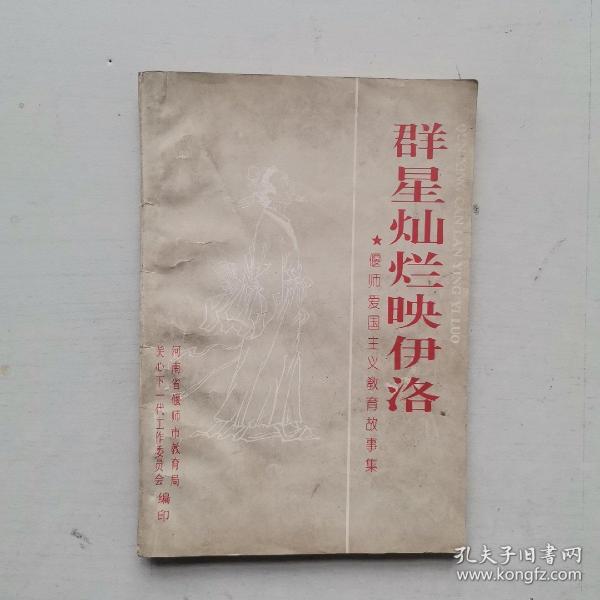 群星灿烂映伊洛
QUN XING CAN LAN YING YI LUO
★偃师爱国主义教育故事集
河南省偃师市教育局
关心下一代工作委员会 编印
孔夫子旧书网
www.kongfz.com